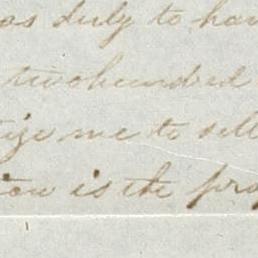 as duly to hav
twohundred
ize me to sell
tow is the pro